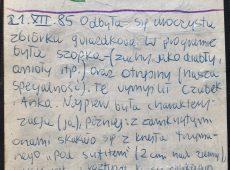 21.XII.85 Odbyła się uroczysta
zbiórka gwiazdkowa. W programie
była szopka - (zuchy jako diabły,
anioły itp.) oraz otrzęsiny (nasza
specjalność). Te wymyślił Czubek
i Anka. Najpierw była charaktery-
zacja (ja), później z zamkniętymi
oczami skakało się z krzesła trzyma-
nego „pod sufitem” (2 cm nad ziemią)